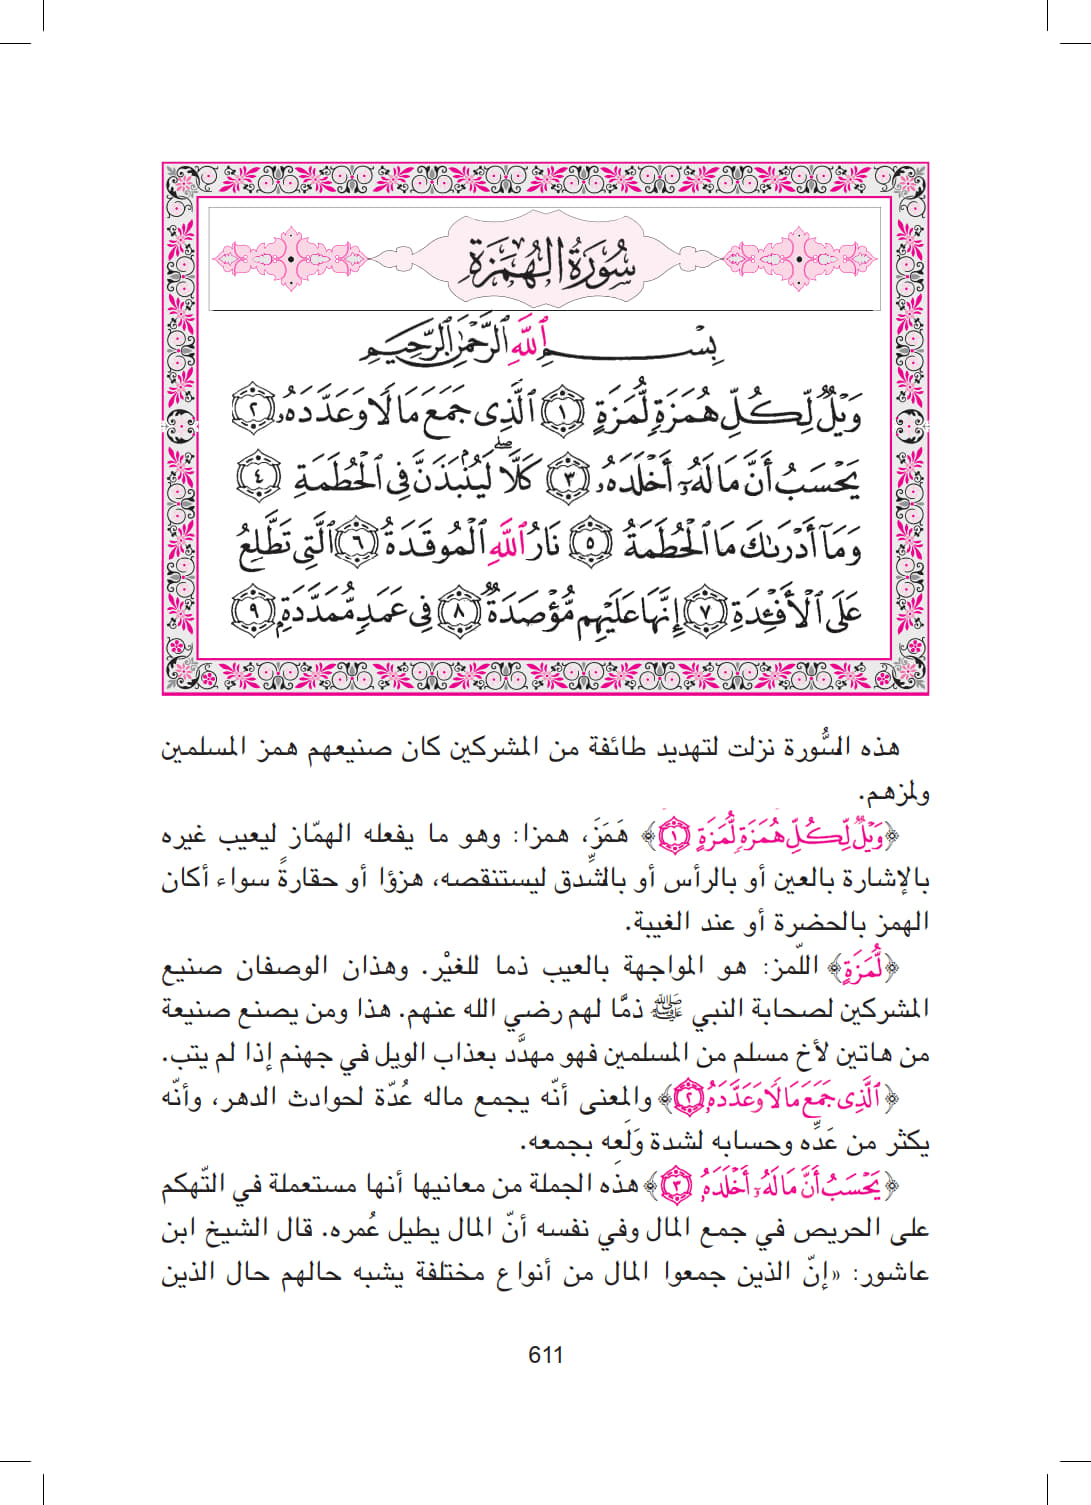 سُورَةُ الهُمَزَة
بِسْمِ اللَّهِ الرَّحْمَٰنِ الرَّحِيمِ
وَيْلٌ لِّكُلِّ هُمَزَةٍ لُّمَزَةٍ ١ ٱلَّذِى جَمَعَ مَالًا وَعَدَّدَهُۥ ٢
يَحْسَبُ أَنَّ مَالَهُۥٓ أَخْلَدَهُۥ ٣ كَلَّا ۖ لَيُنۢبَذَنَّ فِى ٱلْحُطَمَةِ ٤
وَمَآ أَدْرَىٰكَ مَا ٱلْحُطَمَةُ ٥ نَارُ ٱللَّهِ ٱلْمُوقَدَةُ ٦ ٱلَّتِى تَطَّلِعُ
عَلَى ٱلْأَفْـِٔدَةِ ٧ إِنَّهَا عَلَيْهِم مُّؤْصَدَةٌ ٨ فِى عَمَدٍ مُّمَدَّدَةٍۭ ٩
هذه السُّورة نزلت لتهديد طائفة من المشركين كان صنيعهم همز المسلمين
ولمزهم.
﴿وَيْلٌ لِّكُلِّ هُمَزَةٍ لُّمَزَةٍ ١﴾ هَمَزَ، همزا: وهو ما يفعله الهمّاز ليعيب غيره
بالإشارة بالعين أو بالرأس أو بالشِّدق ليستنقصه، هزؤا أو حقارةً سواء أكان
الهمز بالحضرة أو عند الغيبة.
﴿لُّمَزَةٍ﴾ اللّمز: هو المواجهة بالعيب ذما للغيْر. وهذان الوصفان صنيع
المشركين لصحابة النبي ﷺ ذمًّا لهم رضي الله عنهم. هذا ومن يصنع صنيعة
من هاتين لأخ مسلم من المسلمين فهو مهدَّد بعذاب الويل في جهنم إذا لم يتب.
﴿ٱلَّذِى جَمَعَ مَالًا وَعَدَّدَهُۥ ٢﴾ والمعنى أنّه يجمع ماله عُدّة لحوادث الدهر، وأنّه
يكثر من عَدِّه وحسابه لشدة وَلَعِه بجمعه.
﴿يَحْسَبُ أَنَّ مَالَهُۥٓ أَخْلَدَهُۥ ٣﴾ هذه الجملة من معانيها أنها مستعملة في التّهكم
على الحريص في جمع المال وفي نفسه أنّ المال يطيل عُمره. قال الشيخ ابن
عاشور: «إنّ الذين جمعوا المال من أنواع مختلفة يشبه حالهم حال الذين
611